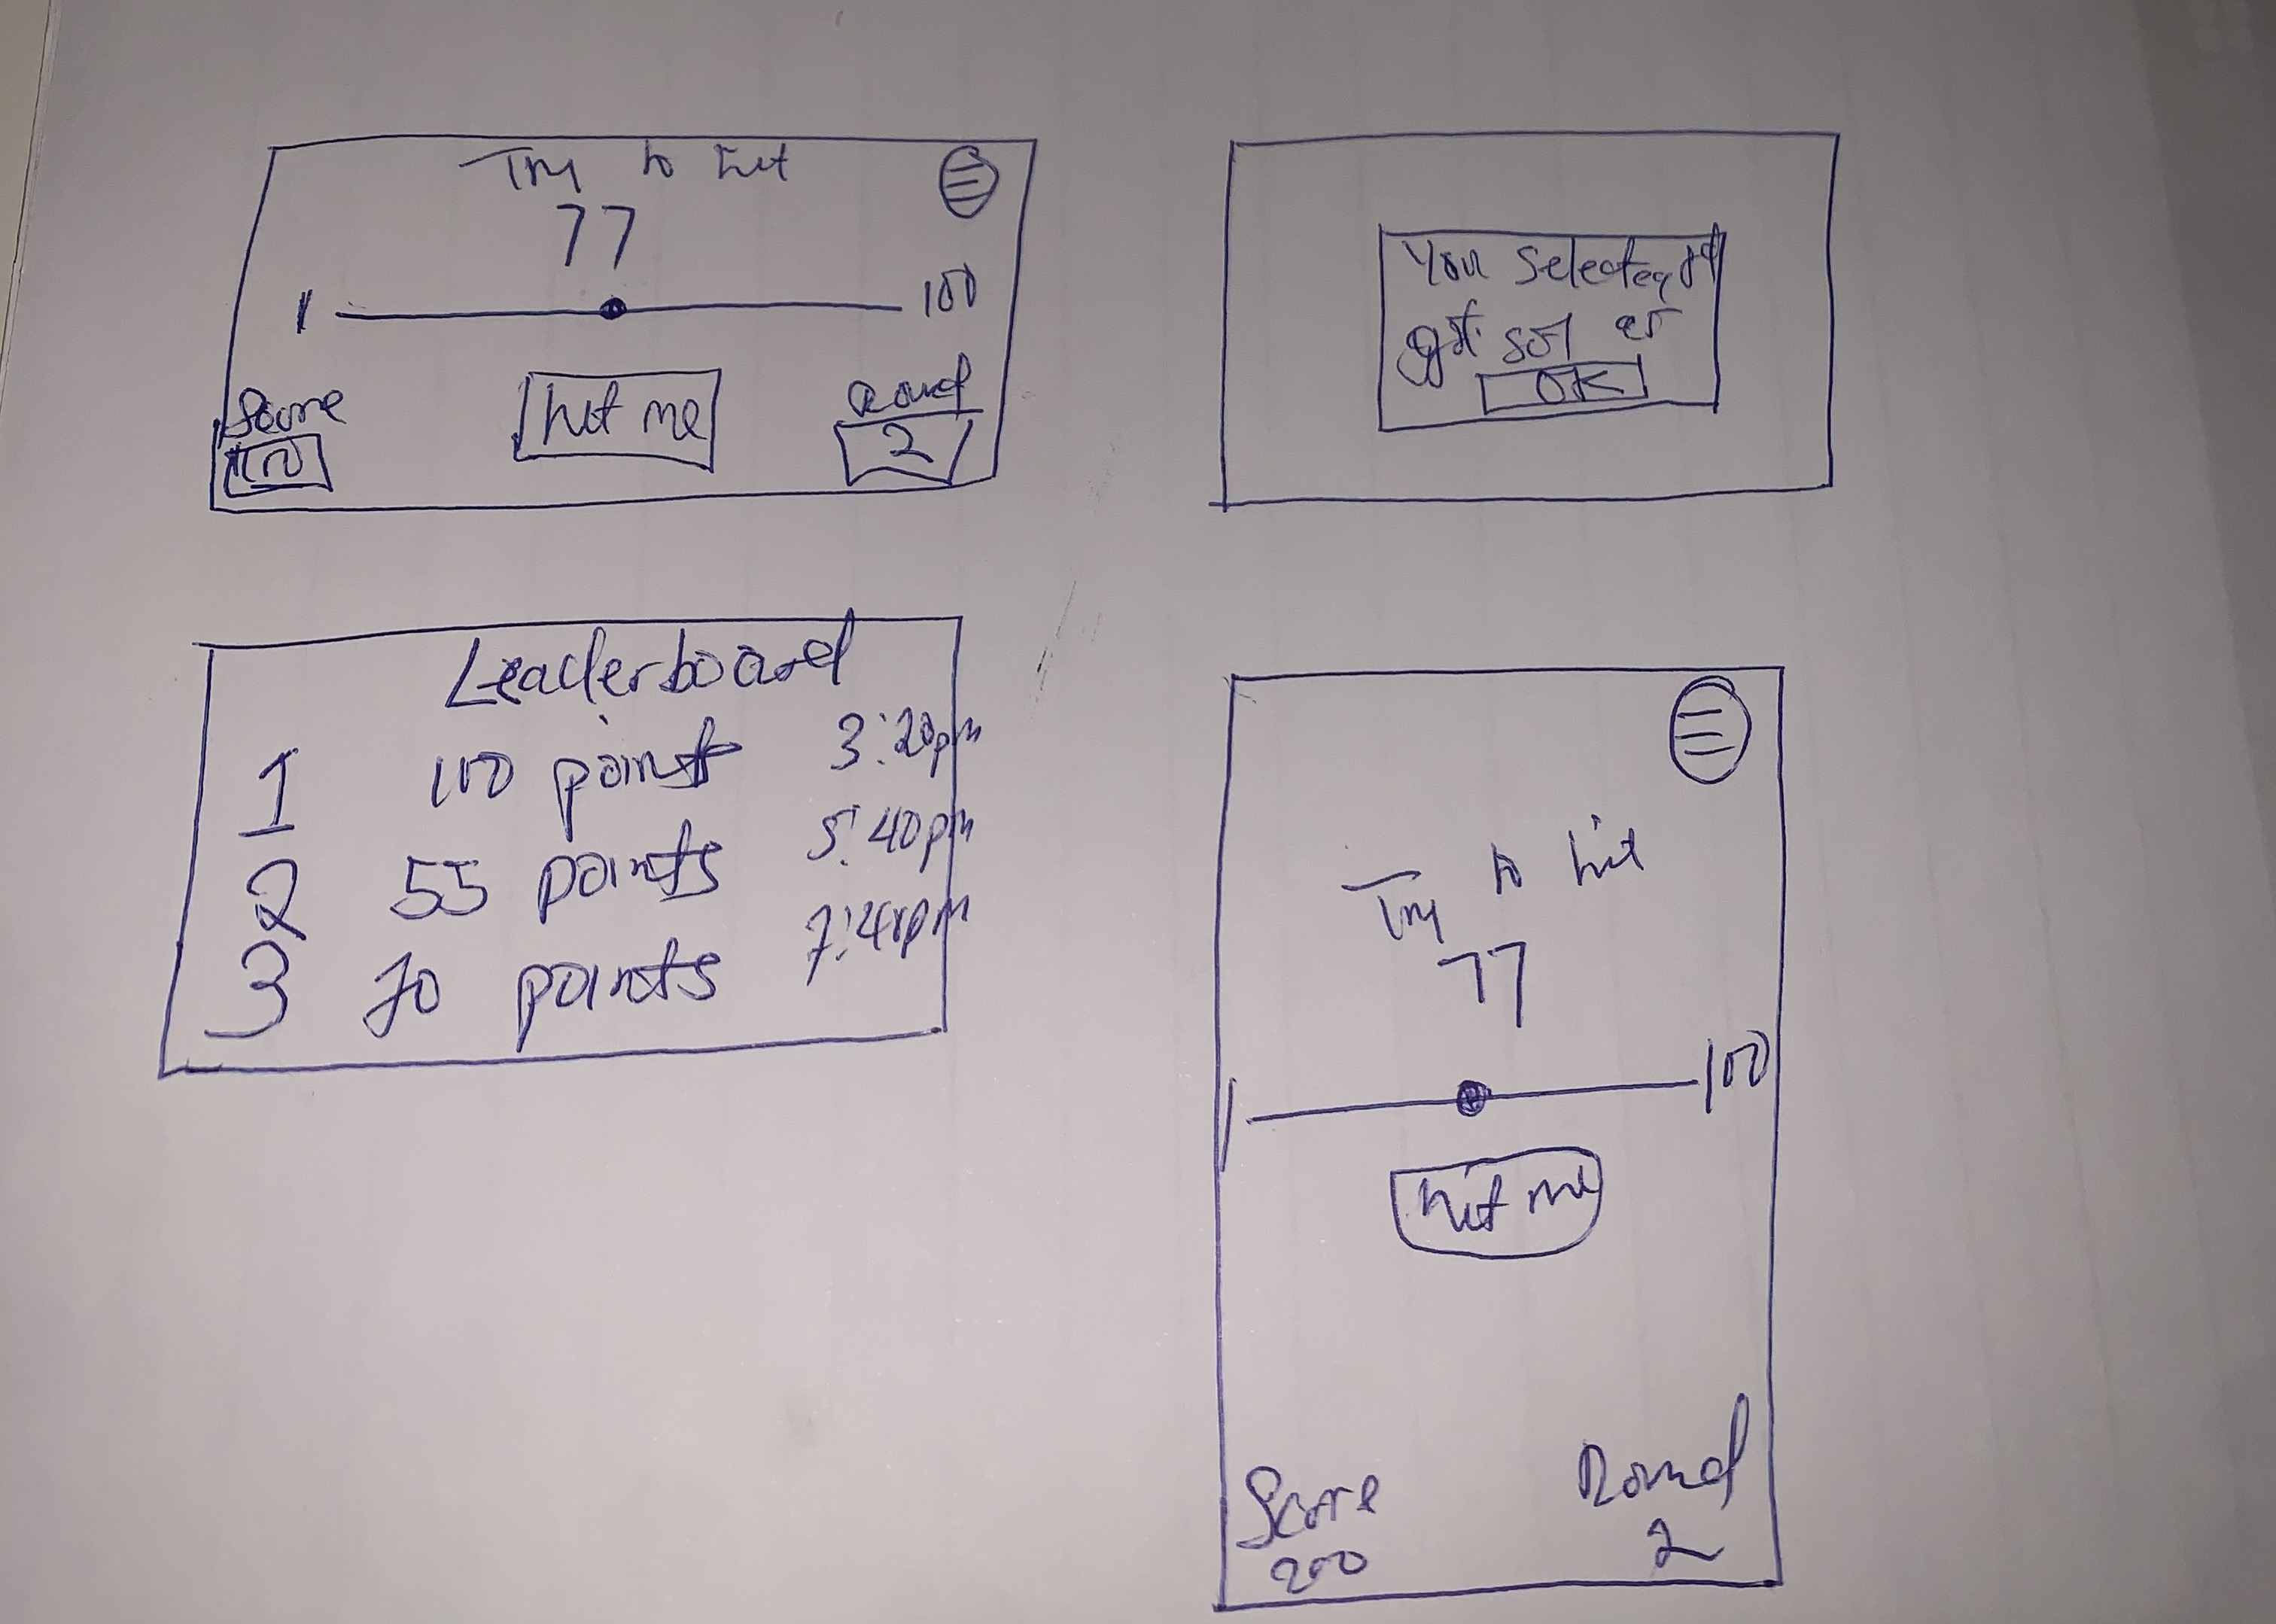 Try to hit
77
1 100
Score hit me Round
2
You selected
got
OK
Leaderboard
1 100 points 3:20pm
2 55 points 5:40pm
3 70 points
Try to hit
77
1 100
hit me
Score Round
200 2